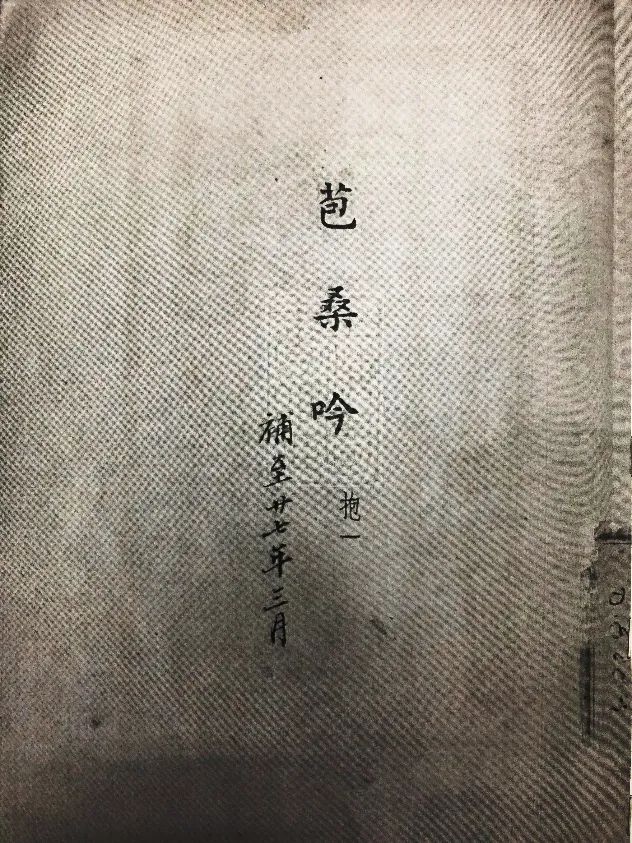 苞桑吟 抱一
補至廿七年三月